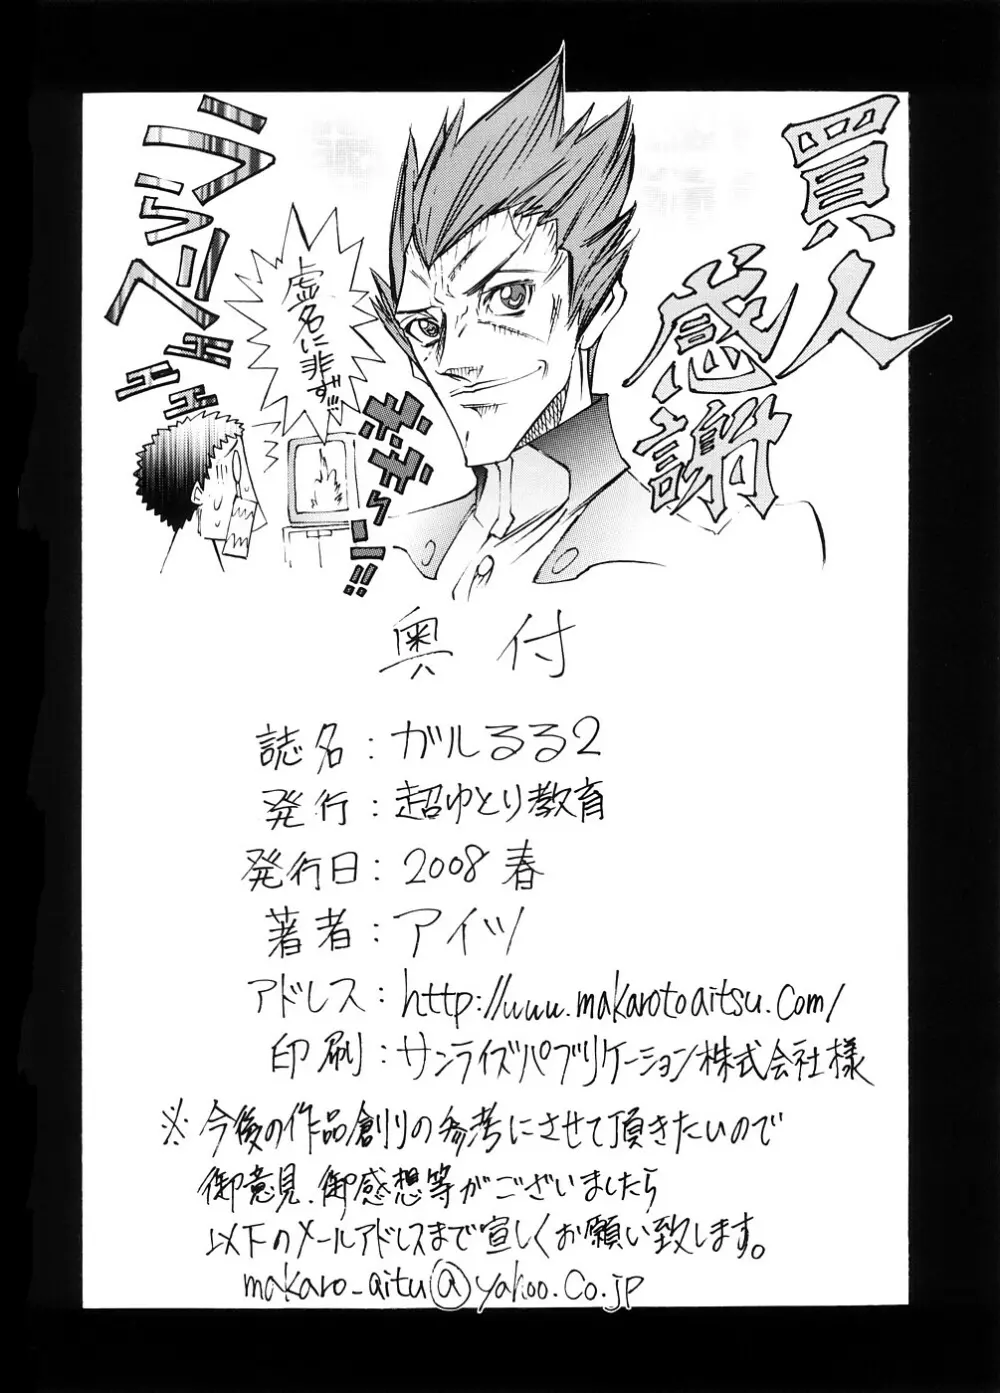 買人
感謝
ラらべ
ェェェェ
虚名に非ず…
奥付
誌名：ガルるる2
発行：超ゆとり教育
発行日：2008春
著者：アイツ
アドレス：http://www.makarotoaitsu.com/
印刷：サンライズパブリケーション株式会社様
※今後の作品創りの参考にさせて頂きたいので
御意見、御感想等がございましたら
以下のメールアドレスまで宜しくお願い致します。
makaro_aitu@yahoo.co.jp